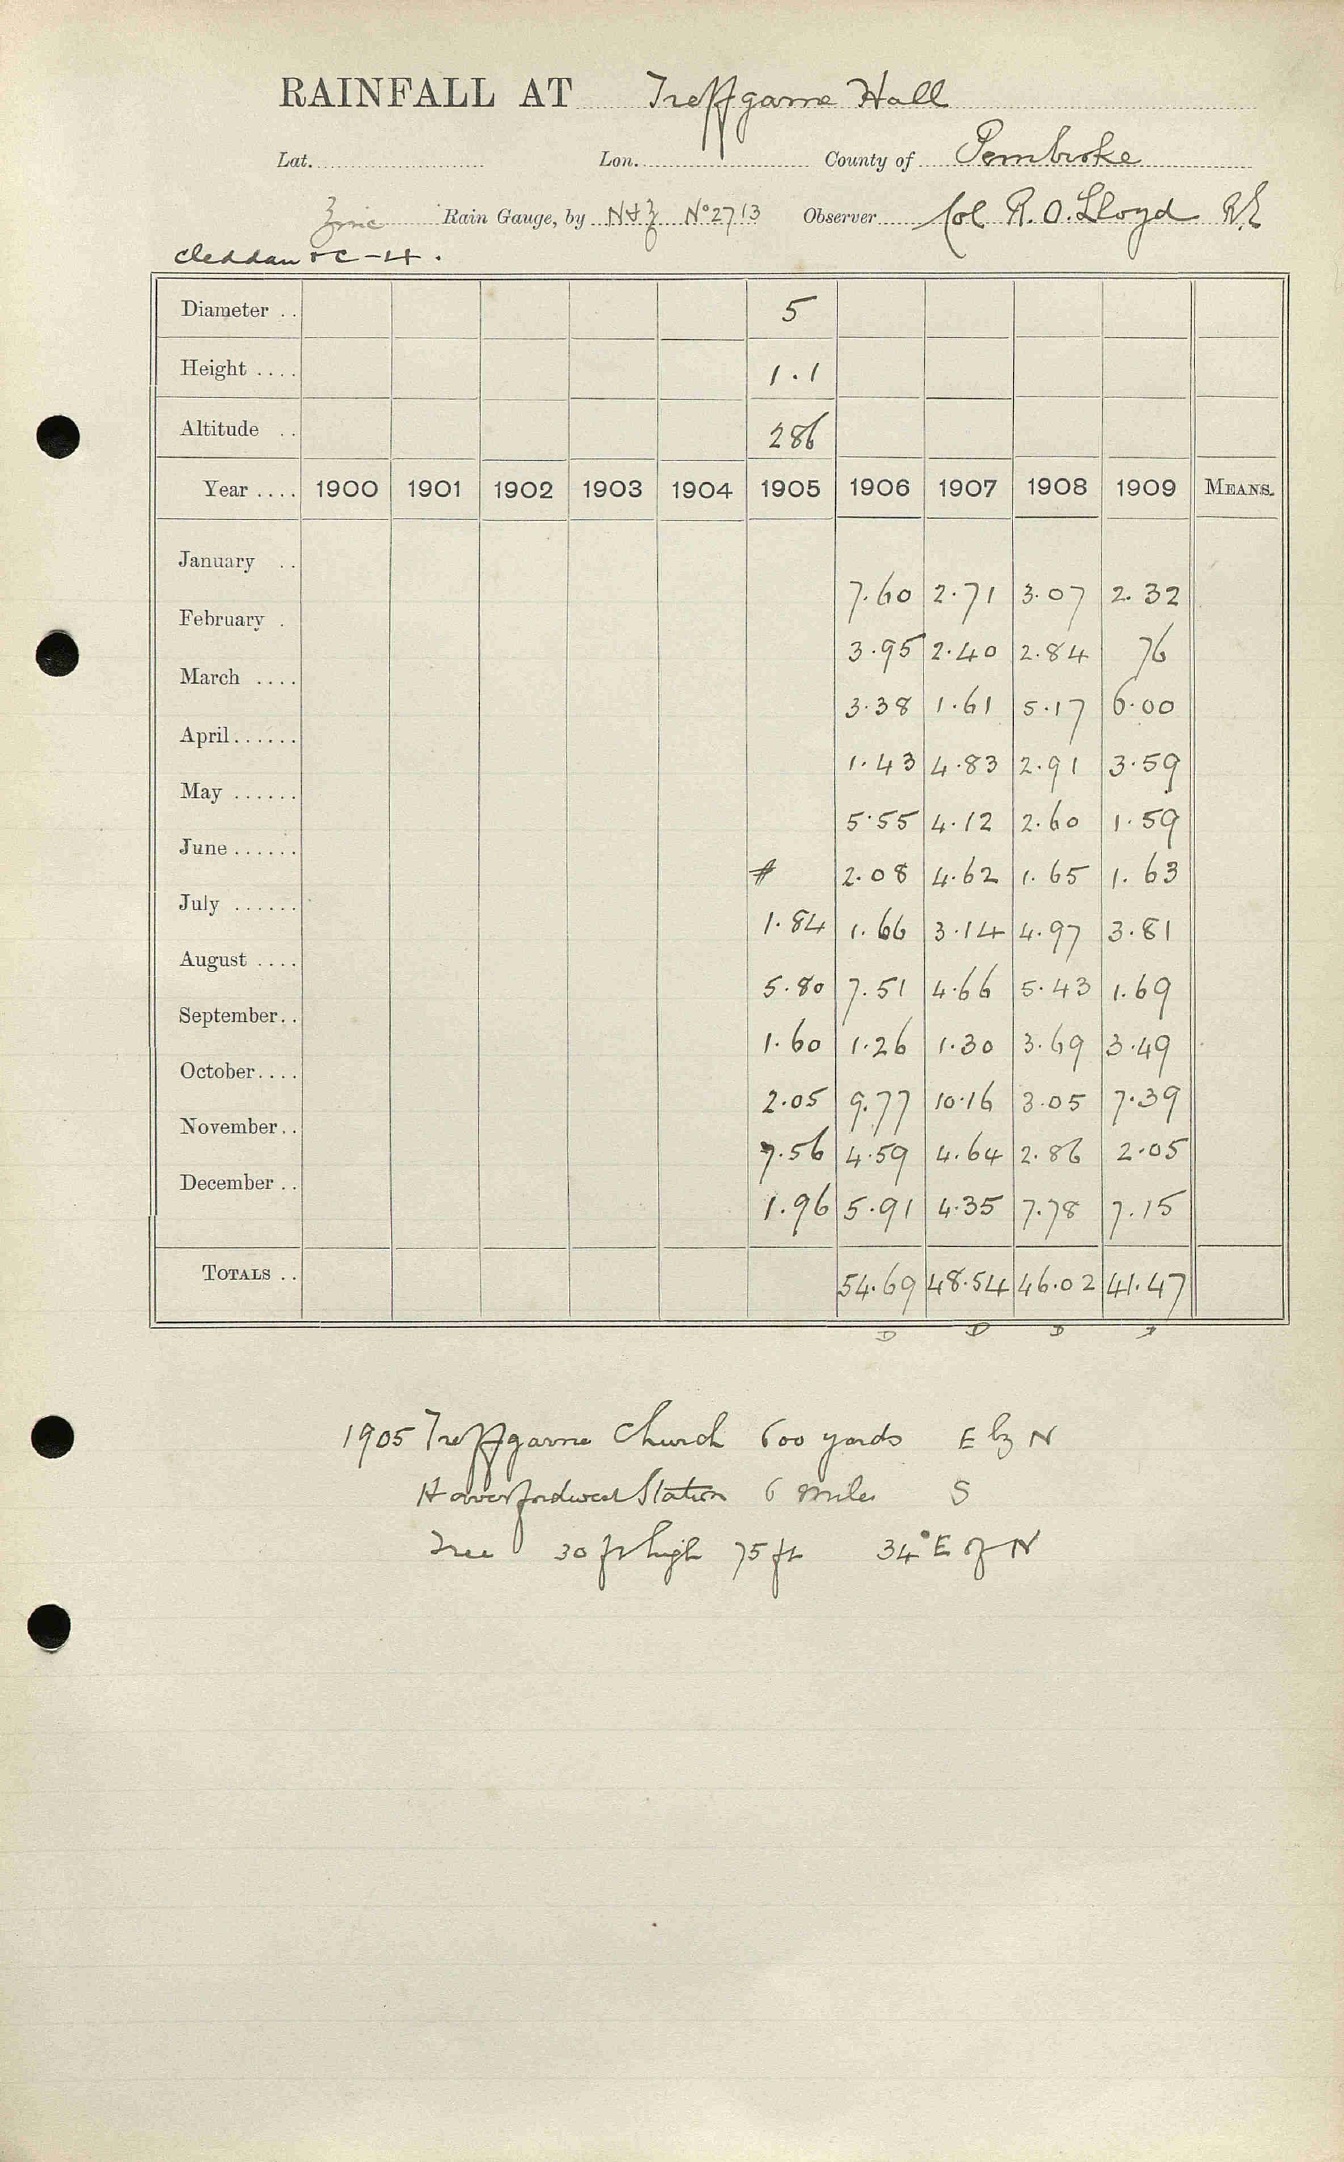 RAINFALL AT Treffgarne Hall
Lat. Lon. County of Pembroke
Zinc Rain Gauge, by N & Z No 2713 Observer Col R. O. Lloyd R.E
Cleddau & C - H.
Diameter .. 5
Height .... 1.1
Altitude .. 286
Year .... 1900 1901 1902 1903 1904 1905 1906 1907 1908 1909 MEANS.
January .. 7.60 2.71 3.07 2.32
February . 3.95 2.40 2.84 76
March .... 3.38 1.61 5.17 6.00
April...... 1.43 4.83 2.91 3.59
May ...... 5.55 4.12 2.60 1.59
June...... # 2.08 4.62 1.65 1.63
July ...... 1.84 1.66 3.14 4.97 3.81
August .... 5.80 7.51 4.66 5.43 1.69
September.. 1.60 1.26 1.30 3.69 3.49
October.... 2.05 9.77 10.16 3.05 7.39
November.. 7.56 4.59 4.64 2.86 2.05
December .. 1.96 5.91 4.35 7.78 7.15
TOTALS .. 54.69 48.54 46.02 41.47
D D D
1905 Treffgarne Church 600 yards E by N
Haverfordwest Station 6 miles S
Tree 30 ft high 75 ft 34° E of N